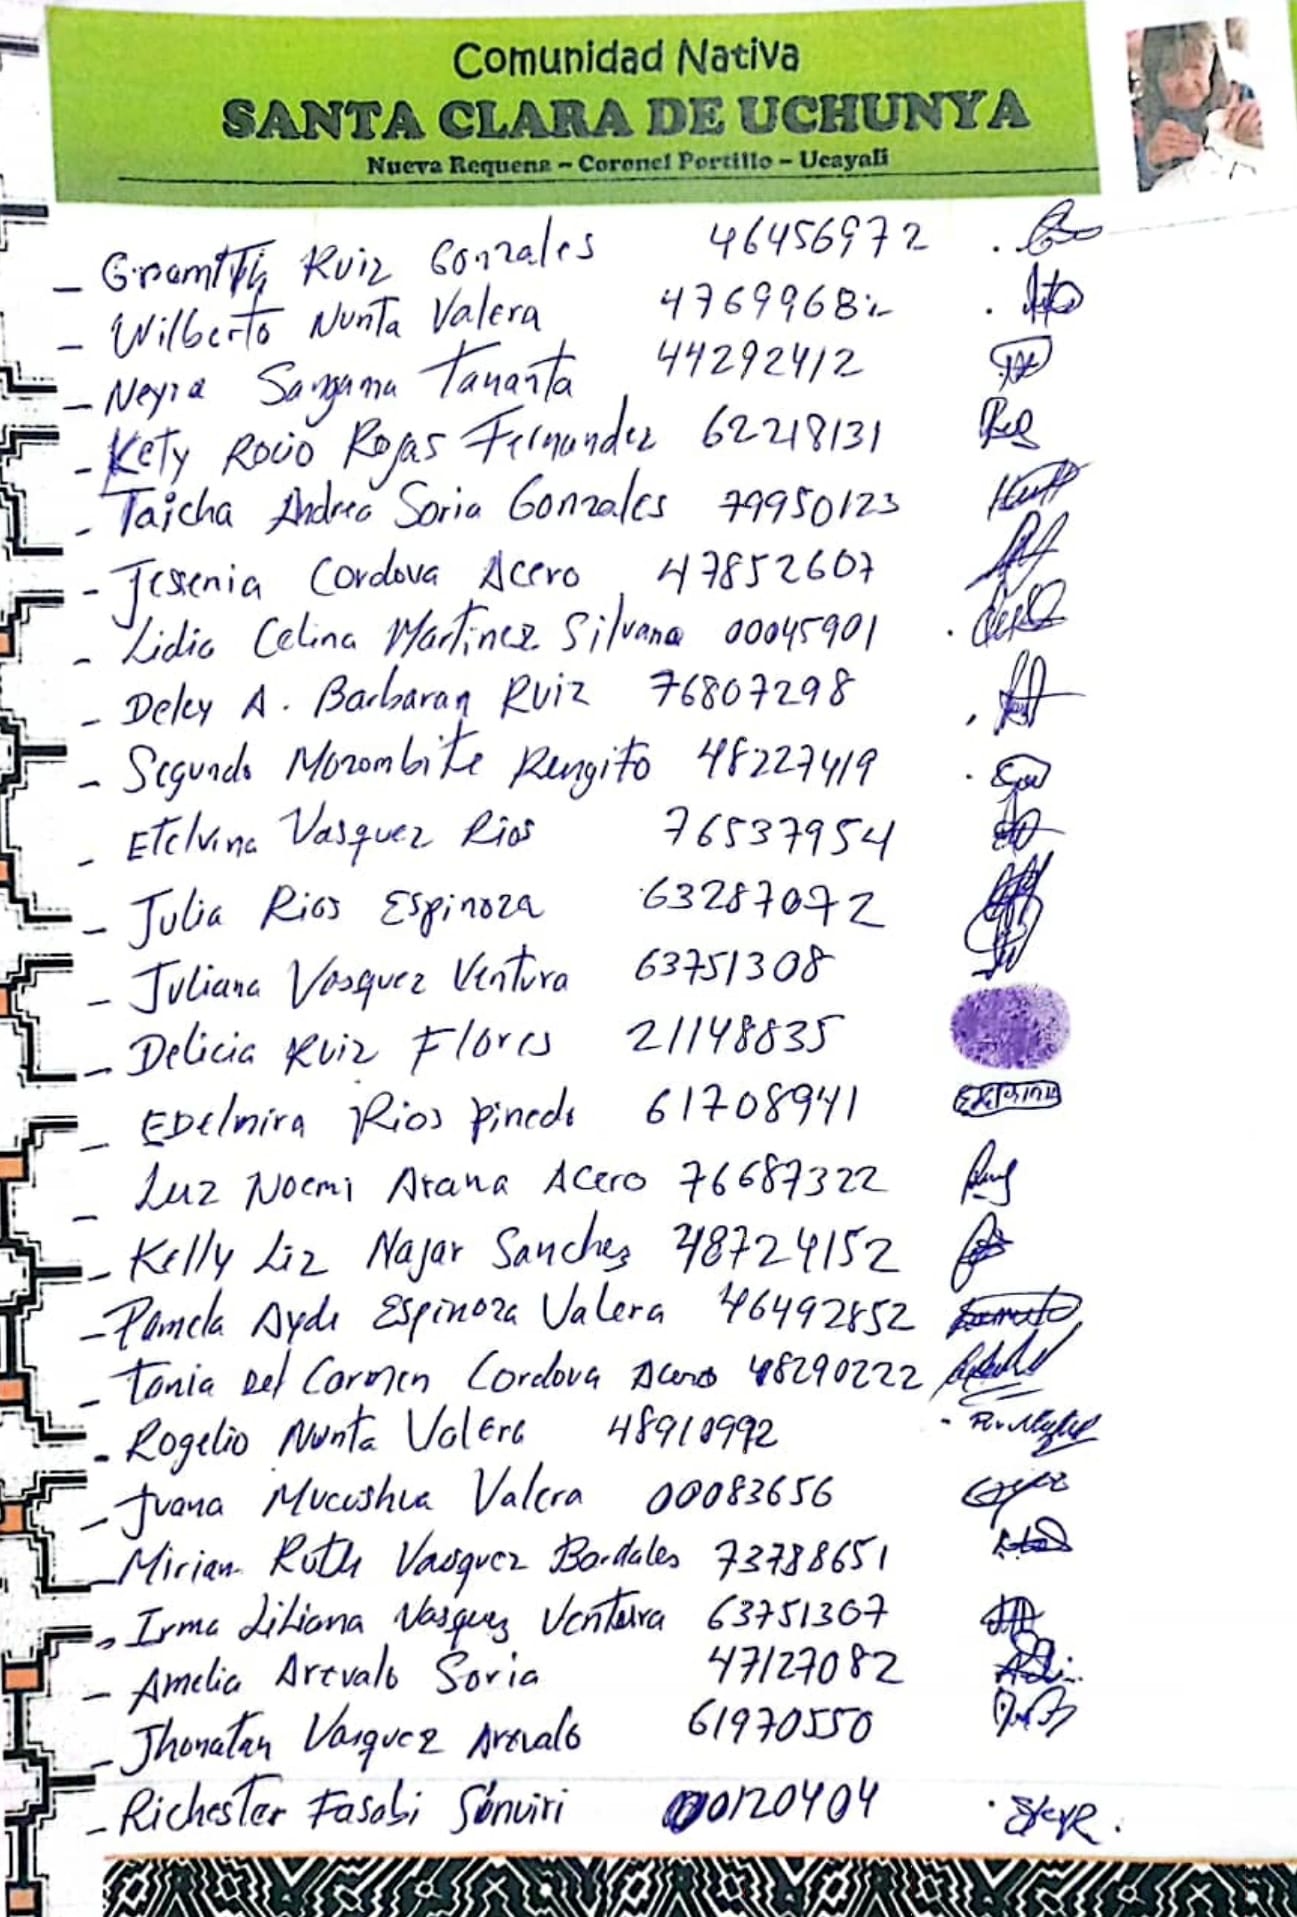 Comunidad Nativa
SANTA CLARA DE UCHUNYA
Nueva Requena – Coronel Portillo – Ucayali
– Ruiz Gonzales 46456972
– Wilberto Nunta Valera 4769968
– Neyra Sangama Tananta 44292412
– Kety Rocio Rojas Fernandez 62218131
– Taicha Andrea Soria Gonzales 79950123
– Jesenia Cordova Acero 47852607
– Lidia Celina Martinez Silvano 00045901
– Deley A. Barbaran Ruiz 76807298
– Segundo Mozombite Rengifo 48227419
– Etelvina Vasquez Rios 76537954
– Julia Rios Espinoza 63287072
– Juliana Vasquez Ventura 63751308
– Delicia Ruiz Flores 21148835
– EDelmira Rios Pinedo 61708941
– Luz Noemi Arana Acero 76687322
– Kelly Liz Najar Sanchez 48724152
– Pamela Ayde Espinoza Valera 46492852
– Tania Del Carmen Cordova Acero 48290222
– Rogelio Nunta Valera 48910992
– Juana Mucushua Valera 00083656
– Mirian Ruth Vasquez Bardales 73788651
– Irma Liliana Vasquez Ventura 63751307
– Amelia Arevalo Soria 47127082
– Jhonatan Vasquez Arevalo 61970550
– Richester Fasabi Sinuiri 00120404